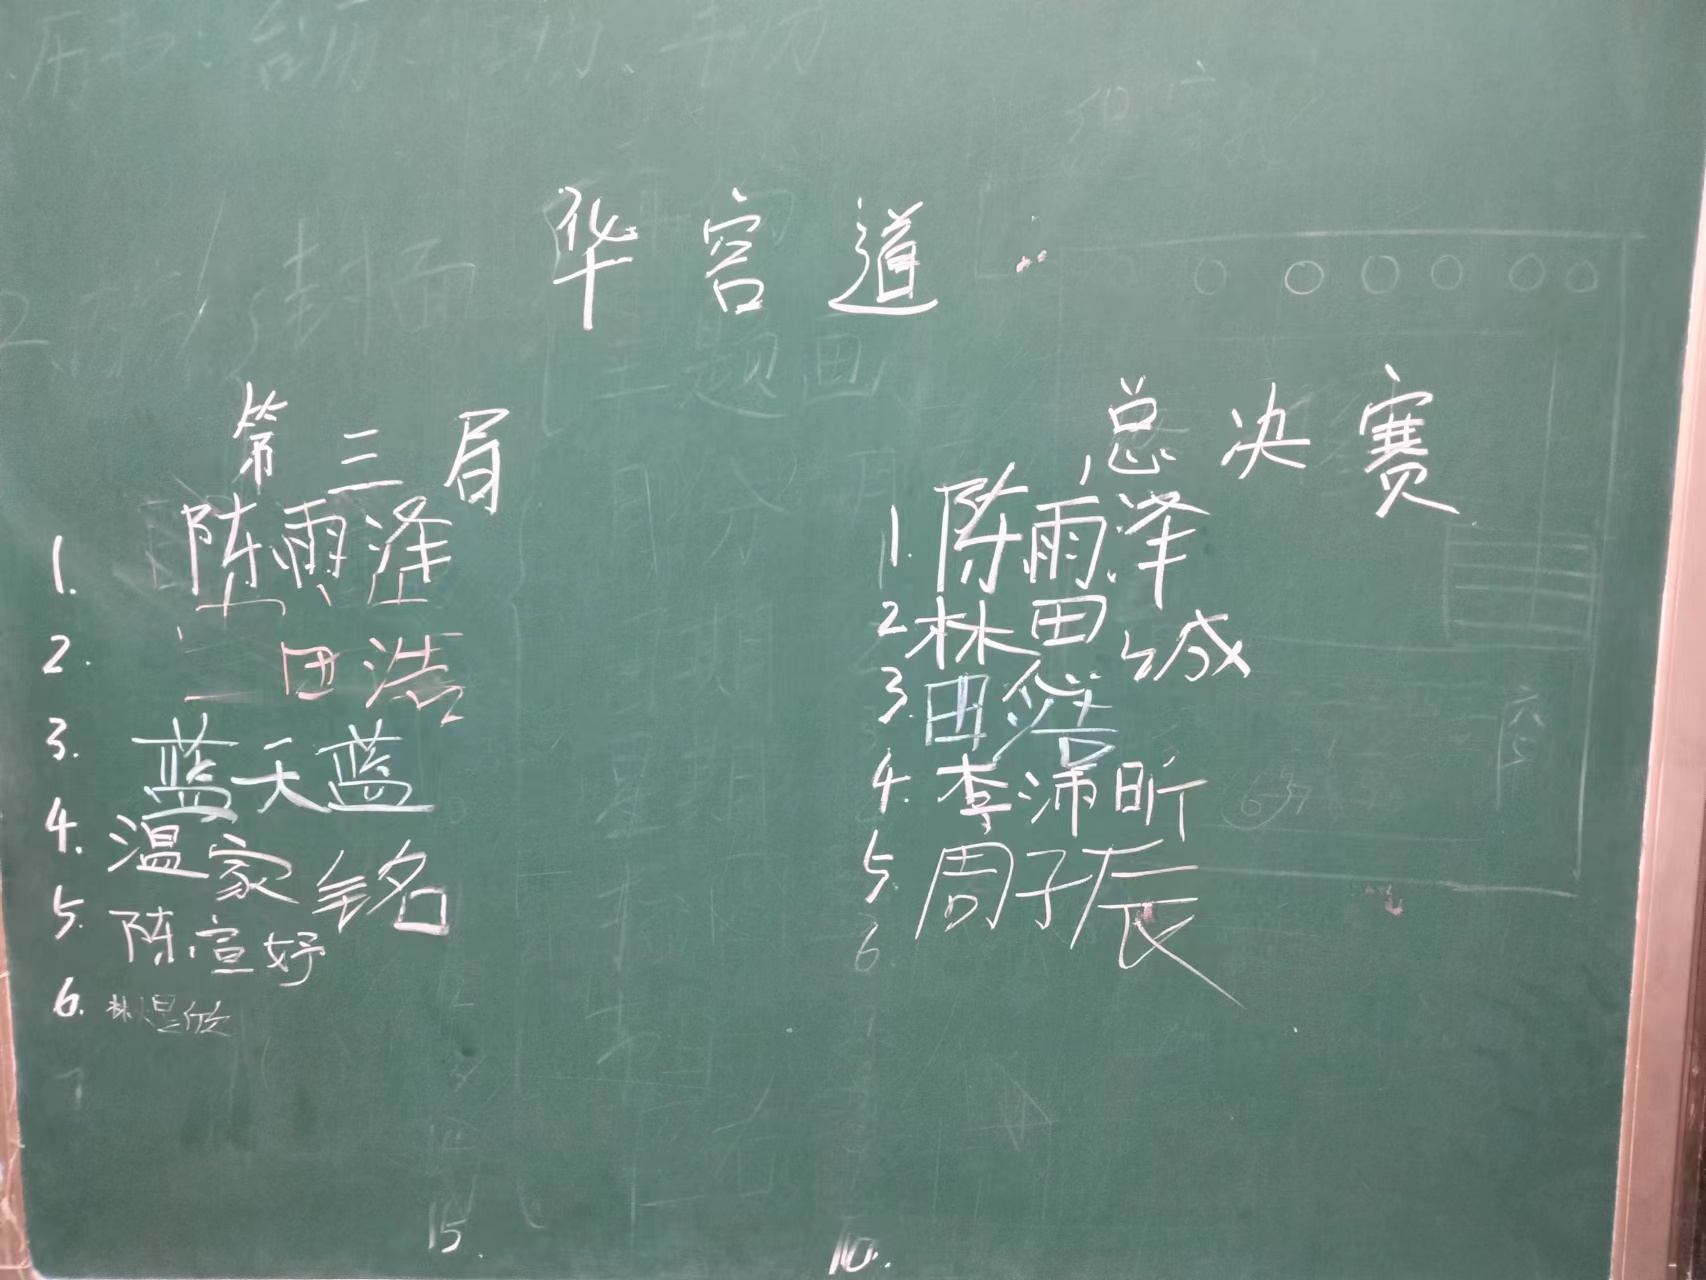 华容道
第三局
1. 陈雨泽
2. 田浩
3. 蓝天蓝
4. 温家铭
5. 陈宣妤
6. 林
15.
总决赛
1. 陈雨泽
2. 林田城
3. 田
4. 李沛昕
5. 周子辰
6.
10.
封面
主题画